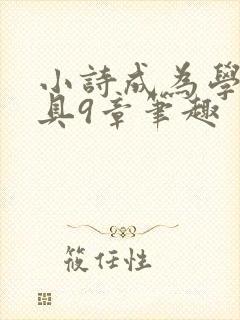 小詩成為學
具9章筆趣
筱任性